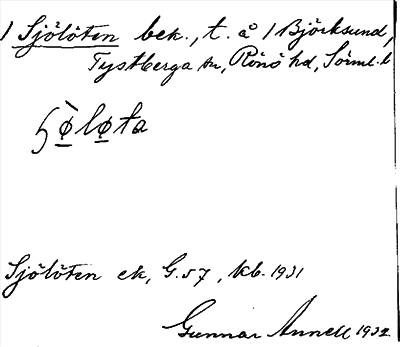 1 Sjölöten bek., t. å 1 Björksund,
Tystberga sn, Rönö hd, Sörml. l.
ʃø̀løta
Sjölöten ek, G. 57, kb. 1931
Gunnar Annell 1932